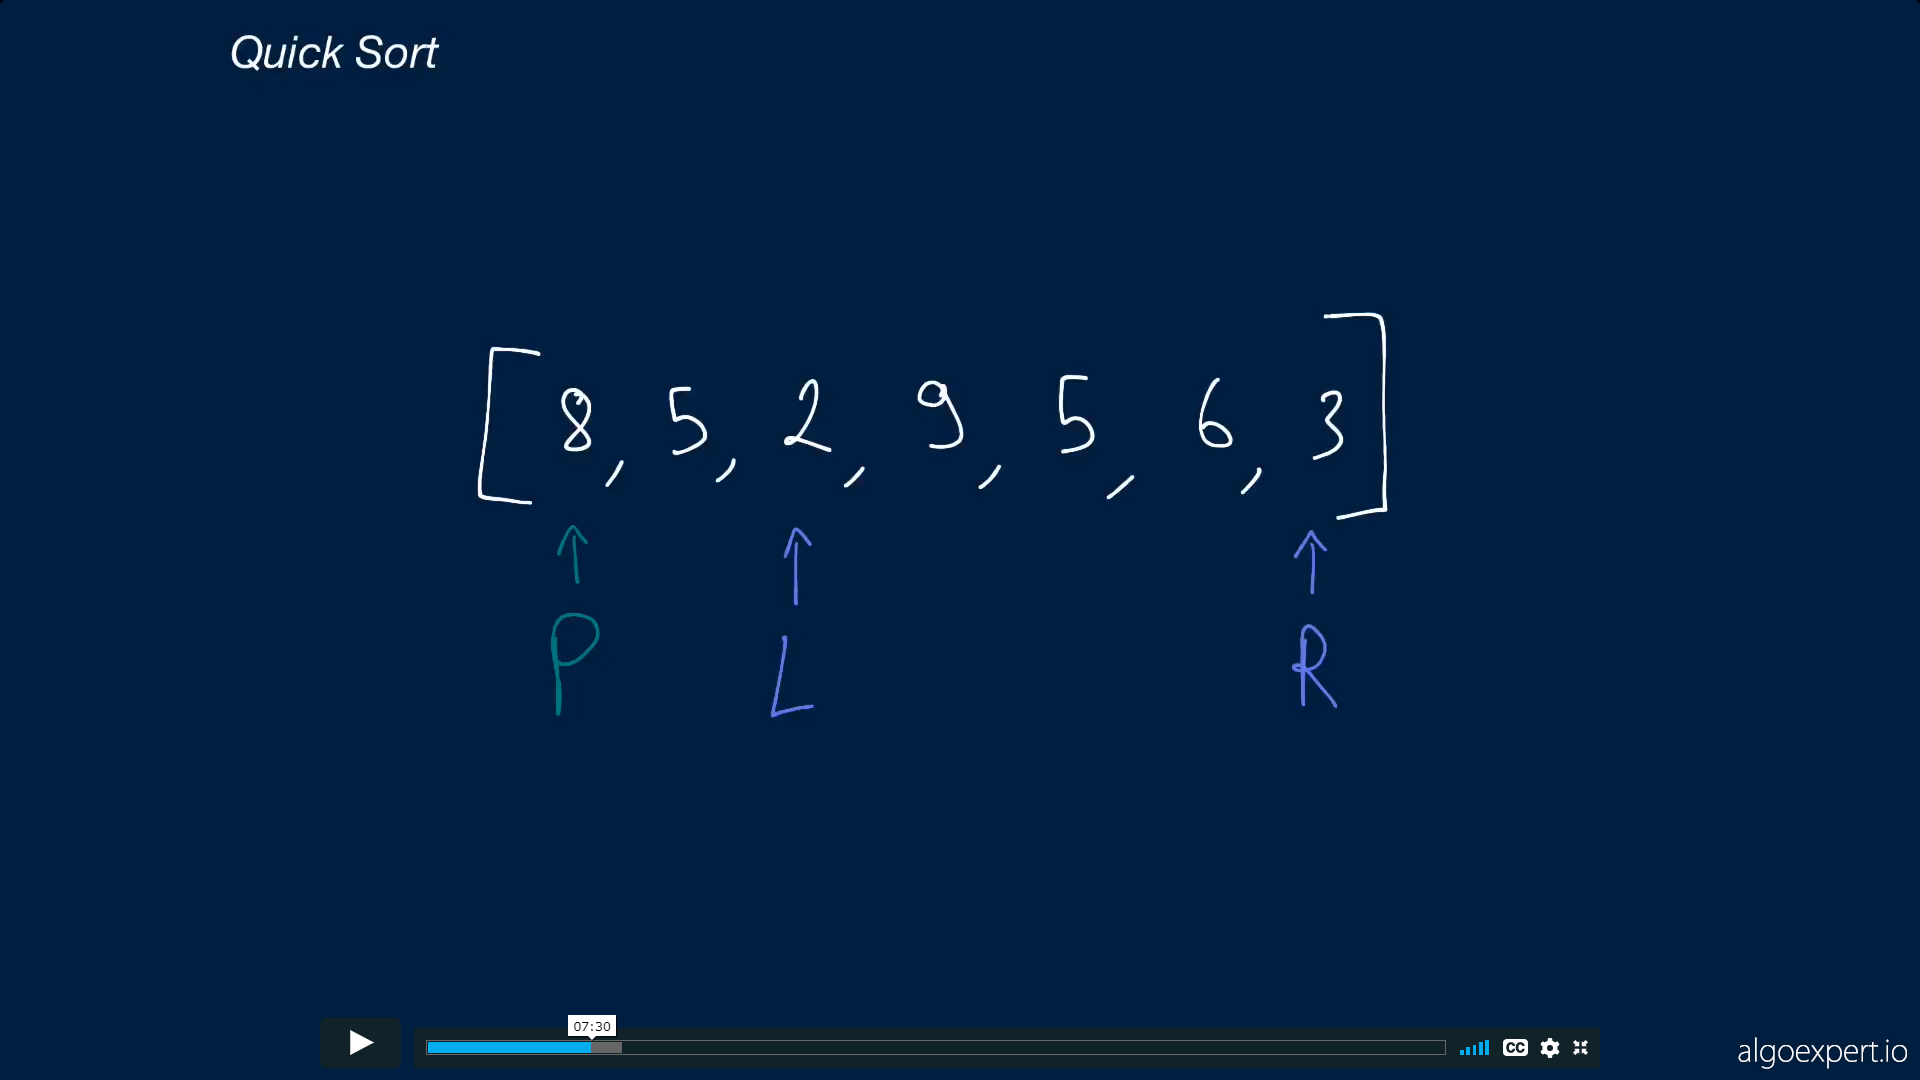 Quick Sort
[8, 5, 2, 9, 5, 6, 3]
P L R
07:30
CC
algoexpert.io